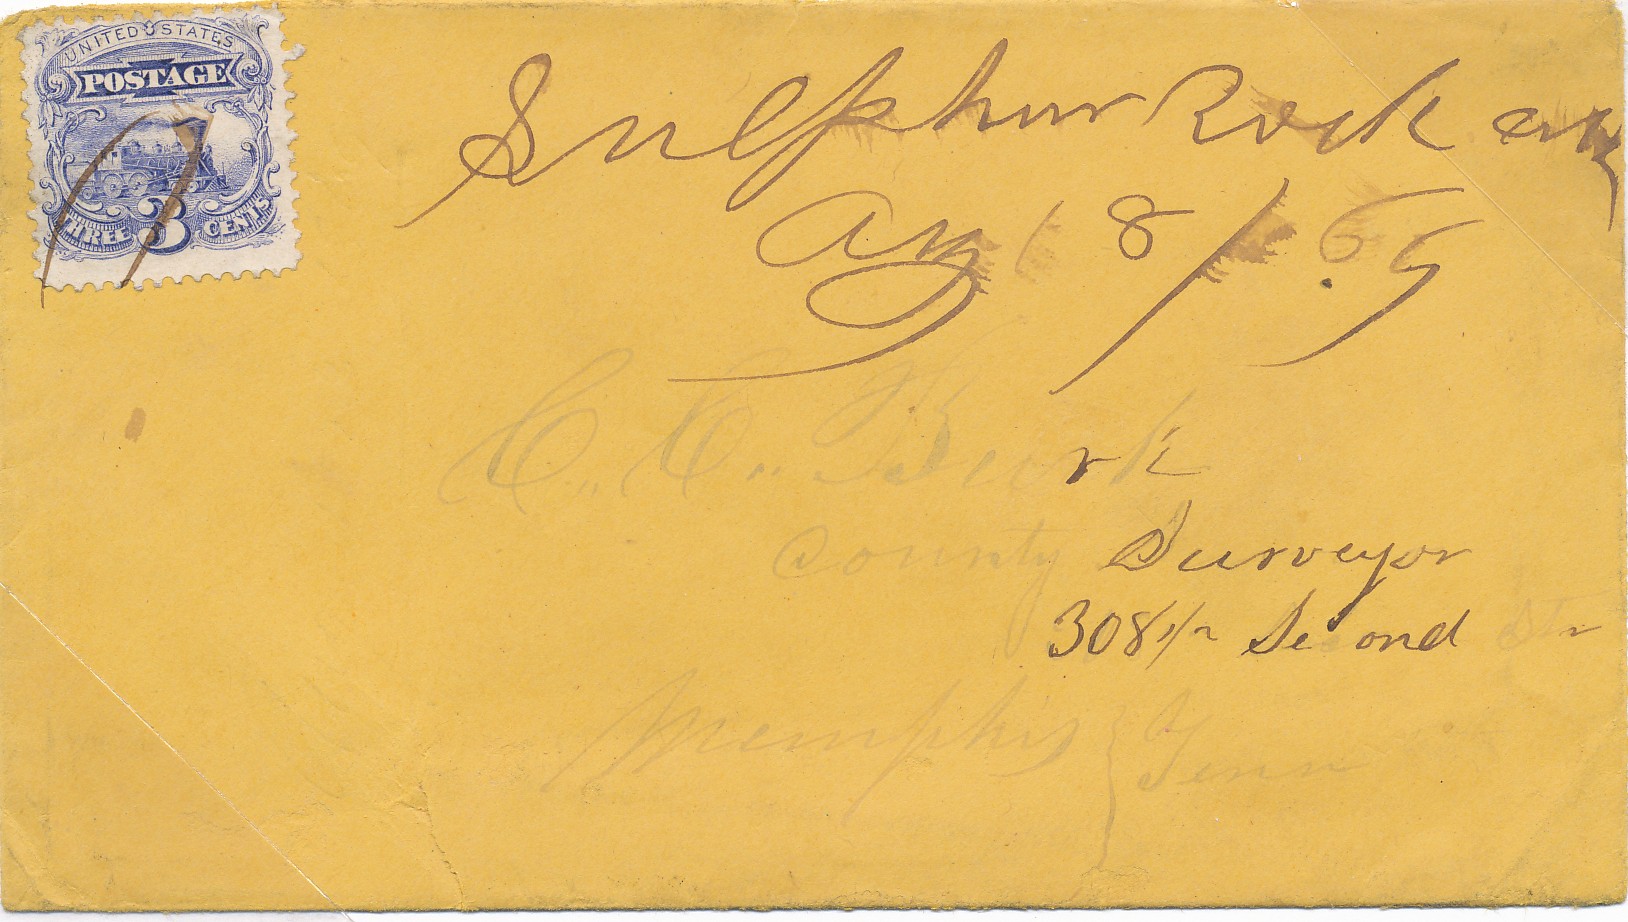 UNITED STATES
POSTAGE
3
THREE CENTS
Sulphur Rock ark
Aug 18/.69
C. C. Burk
County Surveyor
308 1/2 Second Str
Memphis } Tenn